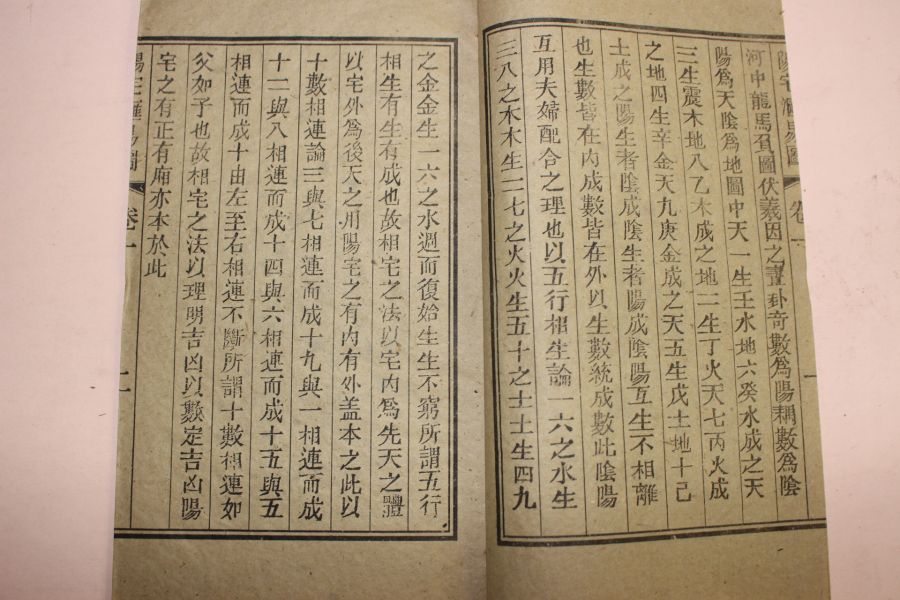 卷一
一
河中龍馬負圖伏羲因之畫卦奇數爲陽耦數爲陰
陽爲天陰爲地圖中天一生壬水地六癸水成之天
三生震木地八乙木成之地二生丁火天七丙火成
之地四生辛金天九庚金成之天五生戊土地十己
土成之陽生者陰成陰生者陽成陰陽互生不相離
也生數皆在内成數皆在外以生數統成數此陰陽
互用夫婦配合之理也以五行相生論一六之水生
三八之木木生二七之火火生五十之土土生四九
之金金生一六之水週而復始生生不窮所謂五行
相生有生有成也故相宅之法以宅内爲先天之體
以宅外爲後天之用陽宅之有内有外盖本之此以
十數相連論三與七相連而成十九與一相連而成
十二與八相連而成十四與六相連而成十五與五
相連而成十由左至右相連不斷所謂十數相連如
父如子也故相宅之法以理明吉凶以數定吉凶陽
宅之有正有廂亦本於此
卷一
二